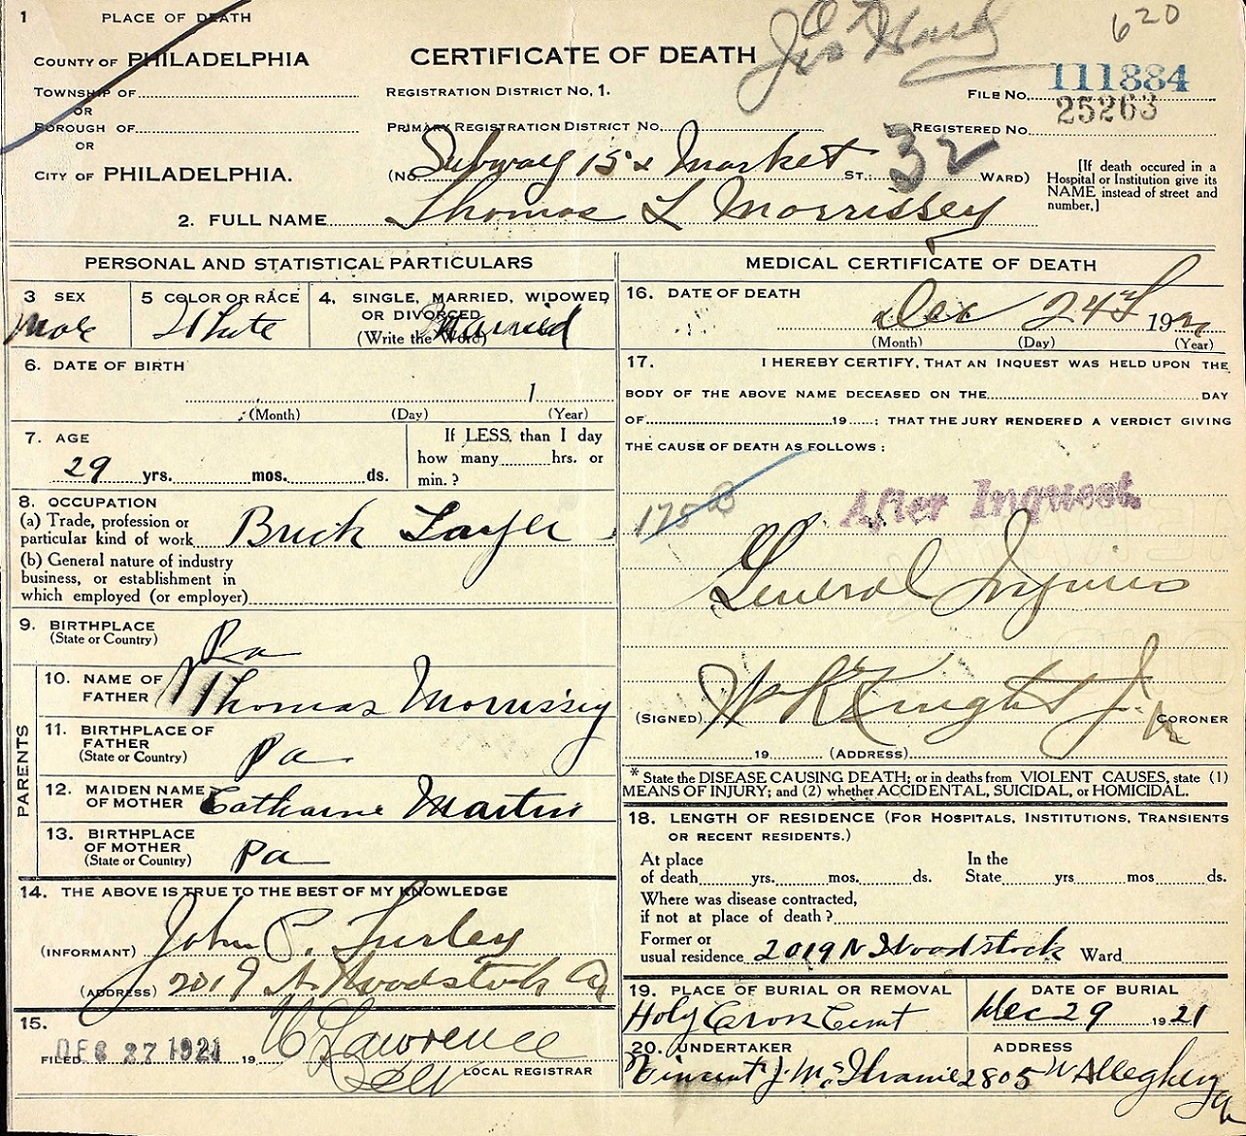 1 PLACE OF DEATH
COUNTY OF PHILADELPHIA
TOWNSHIP OF
OR
BOROUGH OF
OR
CITY OF PHILADELPHIA.
CERTIFICATE OF DEATH
620
REGISTRATION DISTRICT NO. 1.
FILE NO. 111884
PRIMARY REGISTRATION DISTRICT NO.
REGISTERED NO. 25263
(No. Subway 15 & Market ST.: 32 WARD)
[If death occured in a
Hospital or Institution give its
NAME instead of street and
number.]
2. FULL NAME Thomas L Morrissey
PERSONAL AND STATISTICAL PARTICULARS
3 SEX
Male
5 COLOR OR RACE
White
4, SINGLE, MARRIED, WIDOWED
OR DIVORCED
(Write the Word)
Married
6. DATE OF BIRTH
1
(Month) (Day) (Year)
7. AGE
29 yrs. mos. ds.
If LESS, than 1 day
how many hrs. or
min.?
8. OCCUPATION
(a) Trade, profession or
particular kind of work Brick Layer
(b) General nature of industry
business, or establishment in
which employed (or employer)
9. BIRTHPLACE
(State or Country) Pa
PARENTS
10. NAME OF
FATHER Thomas Morrissey
11. BIRTHPLACE OF
FATHER
(State or Country) Pa
12. MAIDEN NAME
OF MOTHER Catharine Martin
13. BIRTHPLACE
OF MOTHER
(State or Country) Pa
14. THE ABOVE IS TRUE TO THE BEST OF MY KNOWLEDGE
(INFORMANT) John P. Furley
(ADDRESS) 2019 N. Woodstock
15.
FILED DEC 27 1921 19 Lawrence
LOCAL REGISTRAR
MEDICAL CERTIFICATE OF DEATH
16. DATE OF DEATH
Dec 24 19 21
(Month) (Day) (Year)
17. I HEREBY CERTIFY, THAT AN INQUEST WAS HELD UPON THE
BODY OF THE ABOVE NAME DECEASED ON THE DAY
OF 19 ; THAT THE JURY RENDERED A VERDICT GIVING
THE CAUSE OF DEATH AS FOLLOWS:
175 B
After Inquest.
General Injuries
(SIGNED) Wm R Knight Jr. CORONER
19 (ADDRESS)
* State the DISEASE CAUSING DEATH; or in deaths from VIOLENT CAUSES, state (1)
MEANS OF INJURY; and (2) whether ACCIDENTAL, SUICIDAL, or HOMICIDAL.
18. LENGTH OF RESIDENCE (FOR HOSPITALS, INSTITUTIONS, TRANSIENTS
OR RECENT RESIDENTS.)
At place
of death yrs. mos. ds.
In the
State yrs mos ds.
Where was disease contracted,
if not at place of death?
Former or
usual residence 2019 N Woodstock Ward
19. PLACE OF BURIAL OR REMOVAL
Holy Cross Cemt
DATE OF BURIAL
Dec 29 1921
20. UNDERTAKER
Vincent J.
ADDRESS
2805 W Allegheny